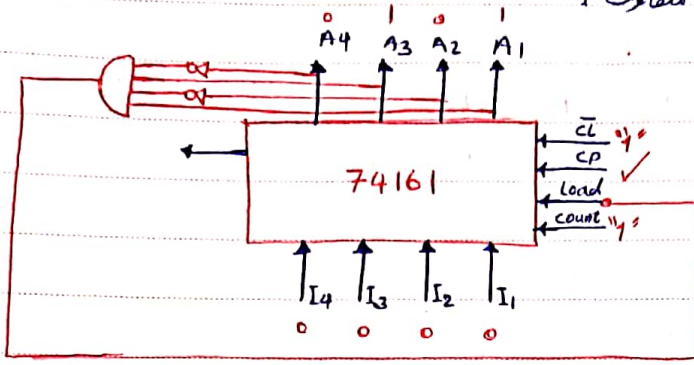 0 1 0 1
A4 A3 A2 A1
C̅L̅ "1"
CP ✓
74161
Load
Count "1"
I4 I3 I2 I1
0 0 0 0